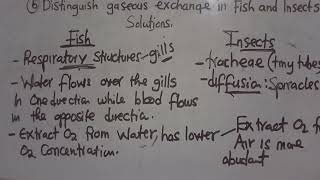 (b) Distinguish gaseous exchange in Fish and Insects
Solutions.
Fish
- Respiratory Structures - gills
- Water flows over the gills
in one direction while blood flows
in the opposite direction.
- Extract O2 from Water, has lower
O2 Concentration.
Insects
- tracheae (tiny tubes
- diffusion: Spiracles
- Extract O2 f
Air is more
abundant